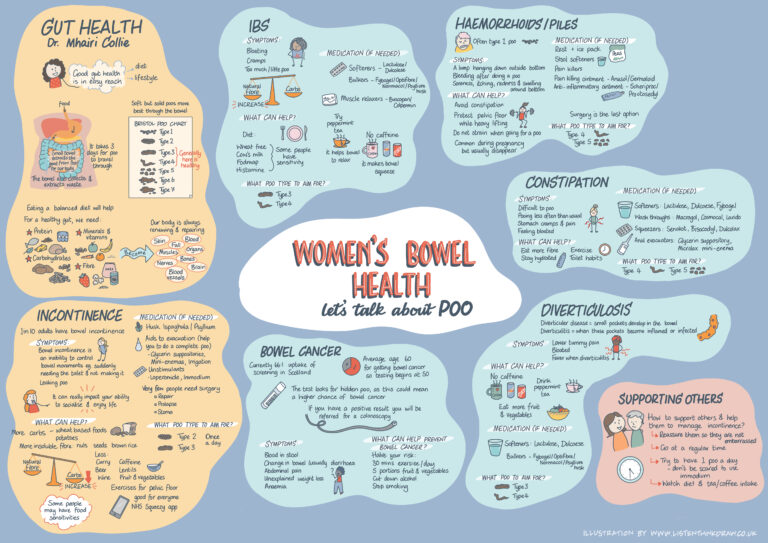 GUT HEALTH
Dr. Mhairi Collie
Good gut health
is in easy reach
diet
lifestyle
food
Good bowel
extracts the
most from food
for our body
The bowel also collects &
extracts waste
It takes 3
days for poo
to travel
through
Soft but solid poos move
best through the bowel
BRISTOL POO CHART
Type 1
Type 2
Type 3
Type 4
Type 5
Type 6
Type 7
Generally
here is
healthy
Eating a balanced diet will help
For a healthy gut, we need:
Protein
Minerals &
vitamins
Carbohydrates
Fibre
Become
Our body is always
renewing & repairing
Skin
Blood
Fat
Muscles
Organs
Nerves
Bones
Blood
vessels
Brain
IBS
SYMPTOMS
Bloating
Cramps
Too much/little poo
Natural
Fibre
Carbs
INCREASE
MEDICATION (IF NEEDED)
Softeners - Lactulose/
Dulcolax
Bulkers - Fybogel/Optifibre/
Normacol/Psyllium
husk
Muscle relaxers - Buscopan/
Colpermin
WHAT CAN HELP?
Diet:
Wheat free
Cow's milk
Fodmap
Histamine
Some people
have
sensitivity
Try
peppermint
tea
it helps bowel
to relax
No caffeine
it makes bowel
squeeze
WHAT POO TYPE TO AIM FOR?
Type 3
Type 4
HAEMORRHOIDS/PILES
Often type 1 poo
SYMPTOMS
A lump hanging down outside bottom
Bleeding after doing a poo
Soreness, itching, redness & swelling
around bottom
WHAT CAN HELP?
Avoid constipation
Protect pelvic floor
while heavy lifting
Do not strain when going for a poo
Common during pregnancy
but usually disappear
MEDICATION (IF NEEDED)
Rest + ice pack
Stool softeners
Pain killers
Pain killing ointment - Anusol/Germaloid
Anti-inflammatory ointment - Scheriproc/
Proctosedyl
Surgery is the last option
WHAT POO TYPE TO AIM FOR?
Type 4
Type 5
CONSTIPATION
SYMPTOMS
Difficult to poo
Pooing less often than usual
Stomach cramps & pain
Feeling bloated
WHAT CAN HELP?
Eat more fibre
Stay hydrated
Exercise
Toilet habits
MEDICATION (IF NEEDED)
Softeners: Lactulose, Dulcoease, Fybogel
Wash throughs: Macrogol, Cosmocol, Laxido
Squeezers: Senokot, Bisacodyl, Dulcolax
Anal evacuators: Glycerin suppository,
Microlax mini-enema
WHAT POO TYPE TO AIM FOR?
Type 4
Type 5
WOMEN'S BOWEL
HEALTH
let's talk about POO
INCONTINENCE
1 in 10 adults have bowel incontinence
SYMPTOMS
Bowel incontinence is
an inability to control
bowel movements eg suddenly
needing the toilet & not making it
Leaking poo
It can really impact your ability
to socialise & enjoy life
WHAT CAN HELP?
More carbs - wheat based foods
potatoes
More insoluble fibre: nuts seeds brown rice
Natural
Fibre
Carbs
INCREASE
Less:
Curry
Beer
Wine
Caffeine
Lentils
Fruit & vegetables
Exercises for pelvic floor
good for everyone
NHS Squeezy app
Some people
may have food
sensitivities
MEDICATION (IF NEEDED)
Husk: Ispaghula / Psyllium
Aids to evacuation (help
you to do a complete poo)
- Glycerin suppositories,
Mini-enemas, Irrigation
Unstimulants
- Loperamide, Immodium
Very few people need surgery
Repair
Prolapse
Stoma
WHAT POO TYPE TO AIM FOR?
Type 2
Type 3
Once a
day
BOWEL CANCER
Currently 66% uptake of
screening in Scotland
Average age 60
for getting bowel cancer
so testing begins at 50
The test looks for hidden poo, as this could mean
a higher chance of bowel cancer
If you have a positive result you will be
referred for a colonoscopy
SYMPTOMS
Blood in stool
Change in bowel (usually diarrhoea)
Abdominal pain
Unexplained weight loss
Anaemia
WHAT CAN HELP PREVENT
BOWEL CANCER?
Halve your risk:
30 mins exercise/day
5 portions fruit & vegetables
Cut down alcohol
Stop smoking
DIVERTICULOSIS
Diverticular disease: small pockets develop in the bowel
Diverticulitis - when these pockets become inflamed or infected
SYMPTOMS
Lower tummy pain
Bloated
Fever when diverticulitis
WHAT CAN HELP?
No caffeine
Drink
peppermint
tea
Eat more fruit
& vegetables
MEDICATION (IF NEEDED)
Softeners: Lactulose, Dulcoease
Bulkers - Fybogel/Optifibre/
Normacol/Psyllium
husk
WHAT POO TYPE TO AIM FOR?
Type 3
Type 4
SUPPORTING OTHERS
How to support others & help
them to manage incontinence?
Reassure them so they are not
embarrassed
Go at a regular time
Try to have 1 poo a day
- don't be scared to use
immodium
Watch diet & tea/coffee intake
ILLUSTRATION BY WWW.LISTENTHINKDRAW.CO.UK